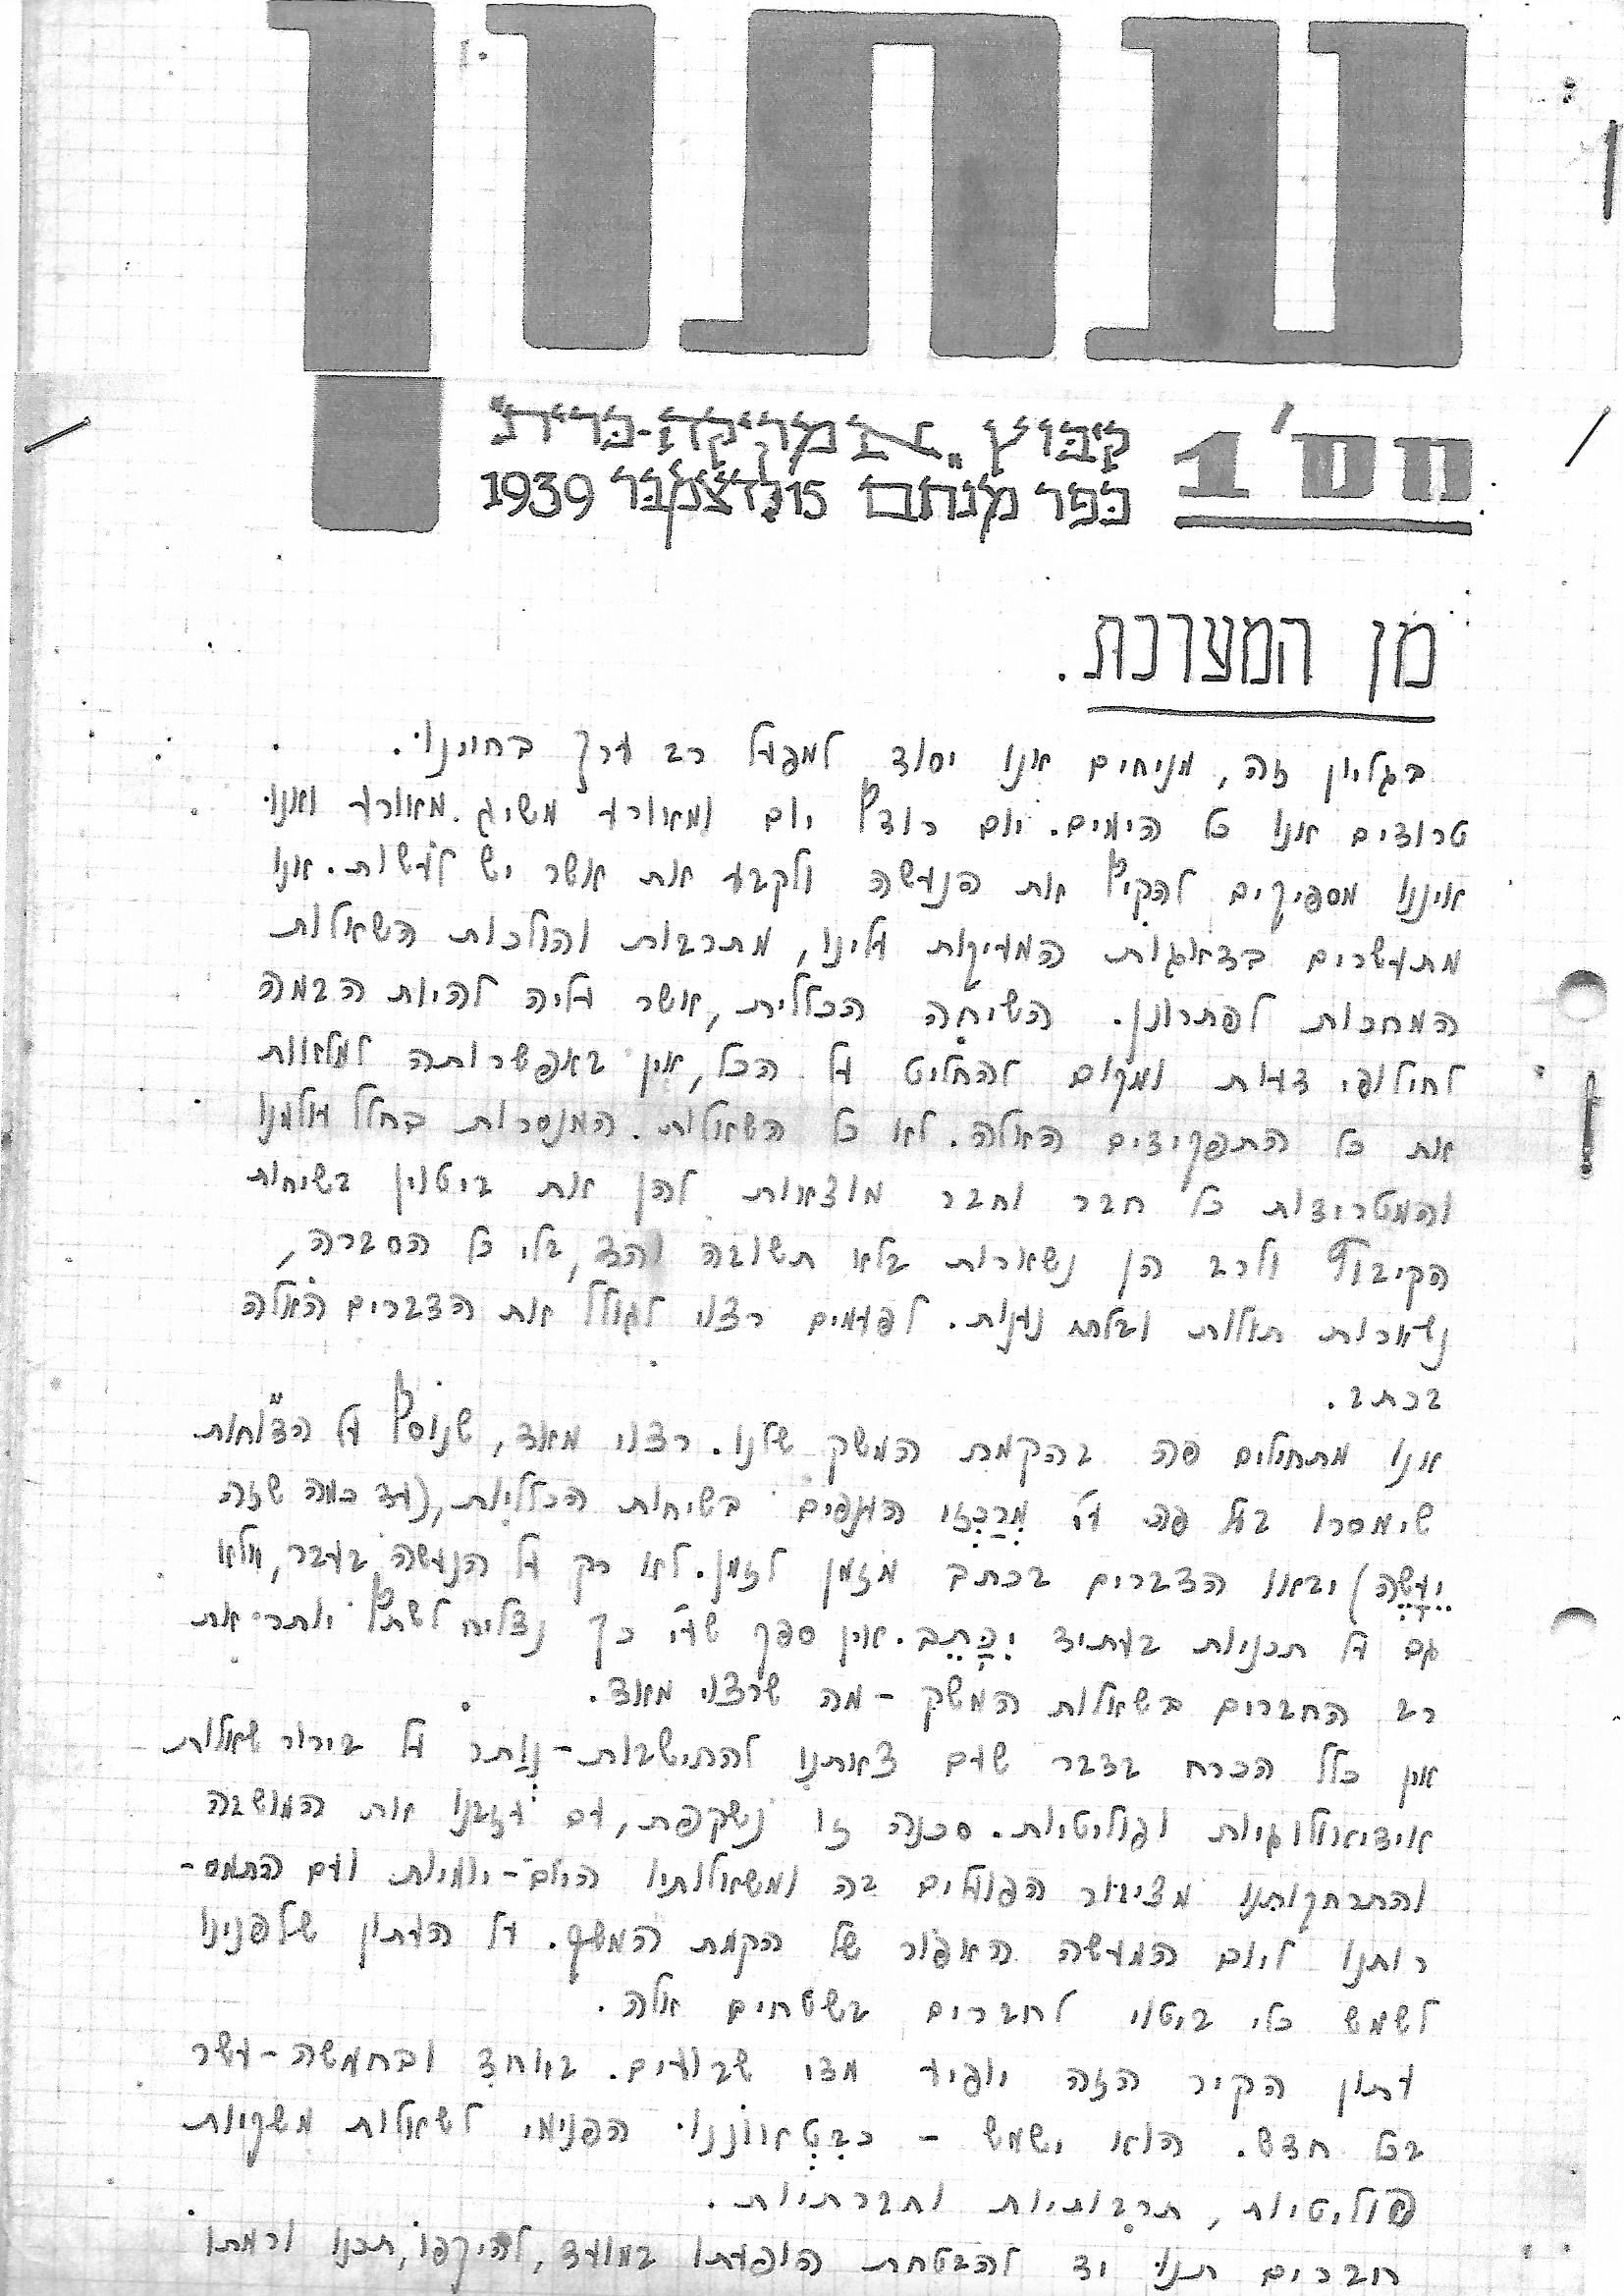 עתון
מס' 1 קיבוץ "אמריקה-ברית"
כפר מנחם 15 לדצמבר 1939
מן המערכת.
בגליון זה, מניחים אנו יסוד למפעל רב ערך בחיינו.
טרודים אנו כל הימים. יום רודף יום ומאורע משיג מאורע ואנו
איננו מספיקים להקיף את הנעשה ולקבע את אשר יש לעשות. אנו
מתעשרים בדאגות המעיקות עלינו, מתרבות והולכות השאלות
המחכות לפתרונן. השיחה הכללית, אשר עליה להיות הבמה
לחילופי דעות ומקום להחליט על הכל, אין באפשרותה למלאות
את כל התפקידים האלה. לא כל השאלות המנסרות בחלל עולמנו
והמטרידות כל חבר וחבר מוצאות להן את ביטוין בשיחות
הקיבוץ ולרב הן נשארות בלא תשובה והד, בלי כל הסברה,
נשארות תלות ובלתי נענות. לפעמים רצוי לגולל את הדברים האלה
בכתב.
אנו מתחילים פה בהקמת המשק שלנו. רצוי מאד, שנוסף על הדו"חות
שימסרו בעל פה ע"י מרכזי הענפים בשיחות הכלליות, (עד כמה שזה
יעשה) יבאו הדברים בכתב מזמן לזמן. לא רק על הנעשה בעבר, אלא
גם על תכניות בעתיד יכתב. אין ספק שע"י כך נצליח לשתף יותר את
רב החברים בשאלות המשק - מה שרצוי מאד.
אין כלל הכרח בדבר שעם צאתנו להתישבות - נותר על בירור שאלות
אידיאולוגיות ופוליטיות. סכנה זו נשקפת, עם עזבנו את המושבה
והתרחקותנו מציבור הפועלים בה ומשאלותיו היום-יומיות ועם התמס-
רותנו ליום המעשה האפור של הקמת המשק. על העתון שלפנינו
לשמש כלי ביטוי לחברים בשטחים אלה.
עתון הקיר הזה יופיע מדי שבועים. באחד ובחמשה-עשר
בכל חדש. הוא ישמש - כבטאוננו הפנימי לשאלות משקיות
פוליטיות, תרבותיות וחברתיות.
חברים תנו יד להבטחת הופעתו במועד, להיקפו, תכנו ורמתו